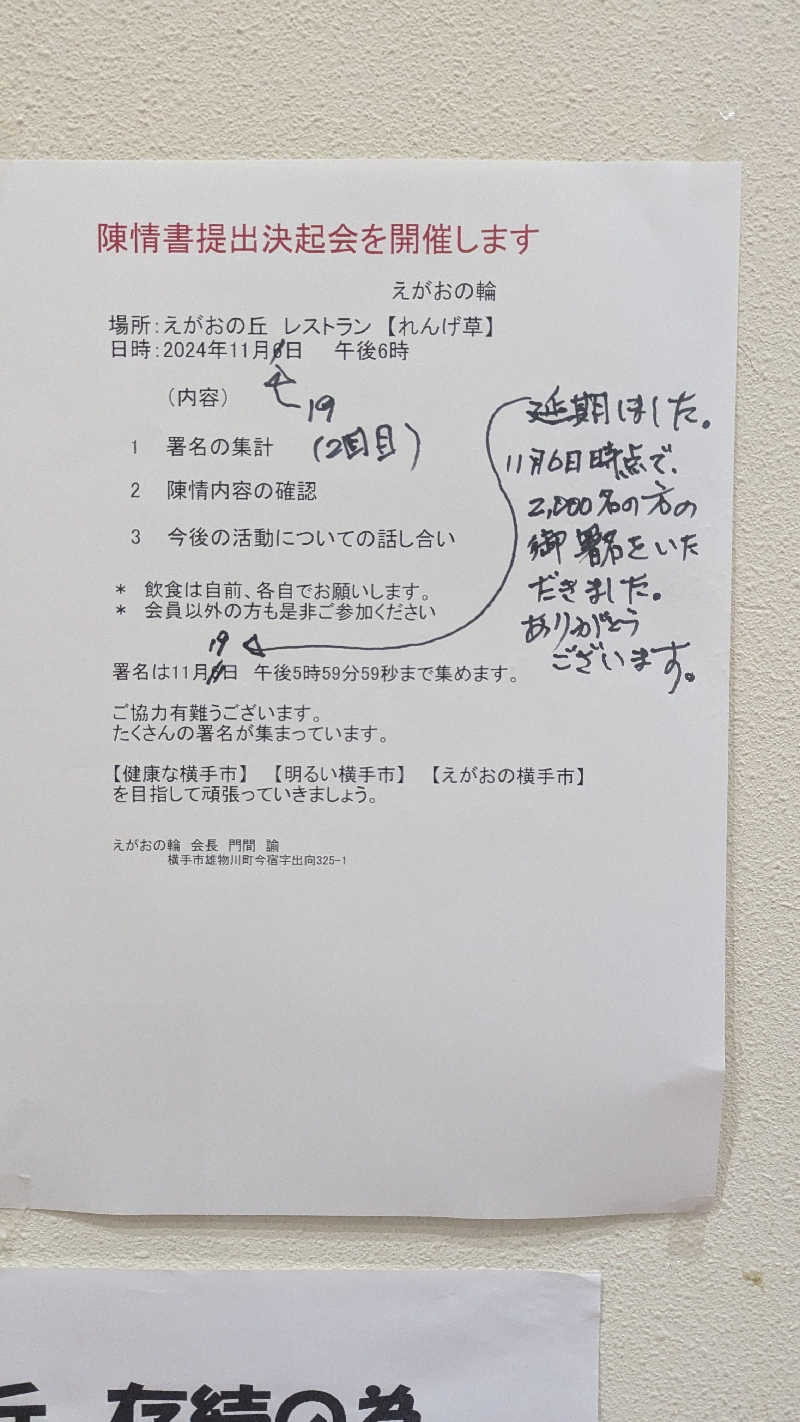 陳情書提出決起会を開催します
えがおの輪
場所：えがおの丘　レストラン　【れんげ草】
日時：2024年11月6日　午後6時
19
（内容）
1　署名の集計　（2回目）
2　陳情内容の確認
3　今後の活動についての話し合い
延期しました。
11月6日時点で、
2,000名の方の
御署名をいた
だきました。
ありがとう
ございます。
＊　飲食は自前、各自でお願いします。
＊　会員以外の方も是非ご参加ください
19
署名は11月6日　午後5時59分59秒まで集めます。
ご協力有難うございます。
たくさんの署名が集まっています。
【健康な横手市】　【明るい横手市】　【えがおの横手市】
を目指して頑張っていきましょう。
えがおの輪　会長　門間　諭
横手市雄物川町今宿字出向325-1
丘　存続の為